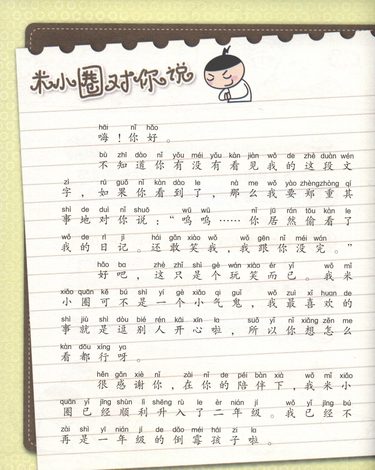 米小圈对你说
hāi nǐ hǎo
嗨！你好。
bù zhī dào nǐ yǒu méi yǒu kàn jiàn wǒ de zhè duàn wén
不知道你有没有看见我的这段文
zì rú guǒ nǐ kàn dào le nà me wǒ yào zhèng zhòng qí
字，如果你看到了，那么我要郑重其
shì de duì nǐ shuō wū wū nǐ jū rán tōu kàn le
事地对你说：“呜呜……你居然偷看了
wǒ de rì jì hái gǎn xiào wǒ wǒ gēn nǐ méi wán
我的日记。还敢笑我，我跟你没完。”
hǎo ba zhè zhǐ shì gè wán xiào ér yǐ wǒ mǐ
好吧，这只是个玩笑而已。我米
xiǎo quān kě bú shì yí gè xiǎo qì guǐ wǒ zuì xǐ huan de
小圈可不是一个小气鬼，我最喜欢的
shì jiù shì dòu bié rén kāi xīn la suǒ yǐ nǐ xiǎng zěn me
事就是逗别人开心啦，所以你想怎么
kàn dōu xíng ya
看都行呀。
hěn gǎn xiè nǐ zài nǐ de péi bàn xià wǒ mǐ xiǎo
很感谢你，在你的陪伴下，我米小
quān yǐ jīng shùn lì shēng rù le èr nián jí wǒ yǐ jīng bú
圈已经顺利升入了二年级。我已经不
zài shì yì nián jí de dǎo méi hái zi la
再是一年级的倒霉孩子啦。